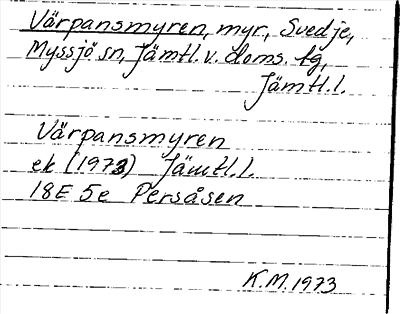 Värpansmyren, myr, Svedje,
Myssjö sn, Jämtl. v. doms. tg,
Jämtl. l.
Värpansmyren
ek (1973) Jämtl. l.
18E 5e Persåsen
K.M. 1973